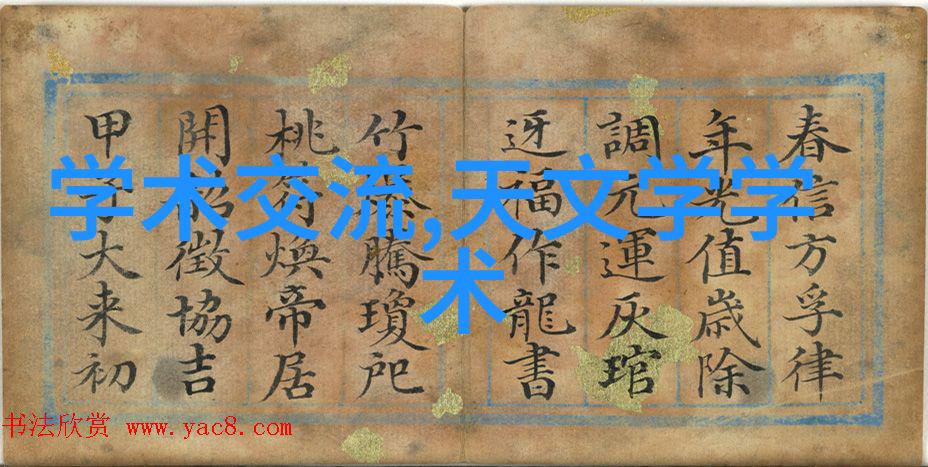 学术交流,天文学学
术
春信方孚律
年光值歲除
調元運灰琯
迓福作龍書
竹騰瓊
桃符煥帝居
開韶徵協吉
甲子大来初
书法欣赏 www.yac8.com